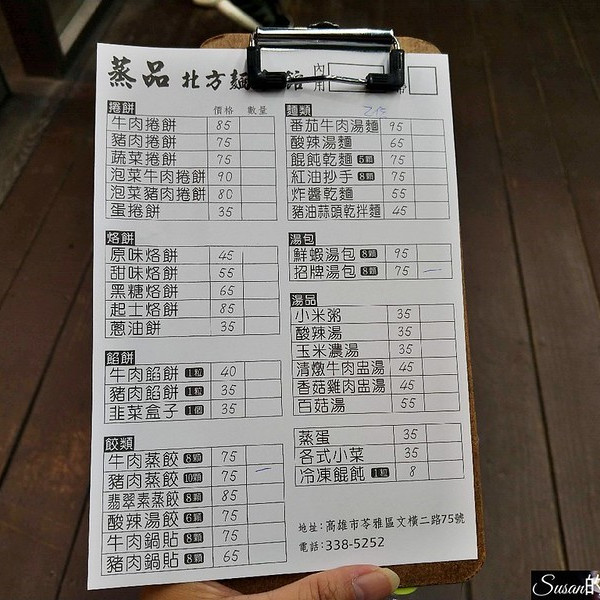 蒸品 北方麵 館
內用
捲餅 價格 數量
牛肉捲餅 85
豬肉捲餅 75
蔬菜捲餅 75
泡菜牛肉捲餅 90
泡菜豬肉捲餅 80
蛋捲餅 35
烙餅
原味烙餅 45
甜味烙餅 55
黑糖烙餅 65
起士烙餅 85
蔥油餅 35
餡餅
牛肉餡餅 1粒 40
豬肉餡餅 1粒 35
韭菜盒子 1個 35
餃類
牛肉蒸餃 8顆 75
豬肉蒸餃 10顆 75
翡翠素蒸餃 8顆 85
酸辣湯餃 6顆 75
牛肉鍋貼 8顆 75
豬肉鍋貼 8顆 65
麵類
番茄牛肉湯麵 95
酸辣湯麵 65
餛飩乾麵 5顆 75
紅油抄手 8顆 75
炸醬乾麵 55
豬油蒜頭乾拌麵 45
湯包
鮮蝦湯包 8顆 95
招牌湯包 8顆 75
湯品
小米粥 35
酸辣湯 35
玉米濃湯 35
清燉牛肉盅湯 45
香菇雞肉盅湯 45
百菇湯 55
蒸蛋 35
各式小菜 35
冷凍餛飩 1粒 8
地址:高雄市苓雅區文橫二路75號
電話:338-5252
Susan的